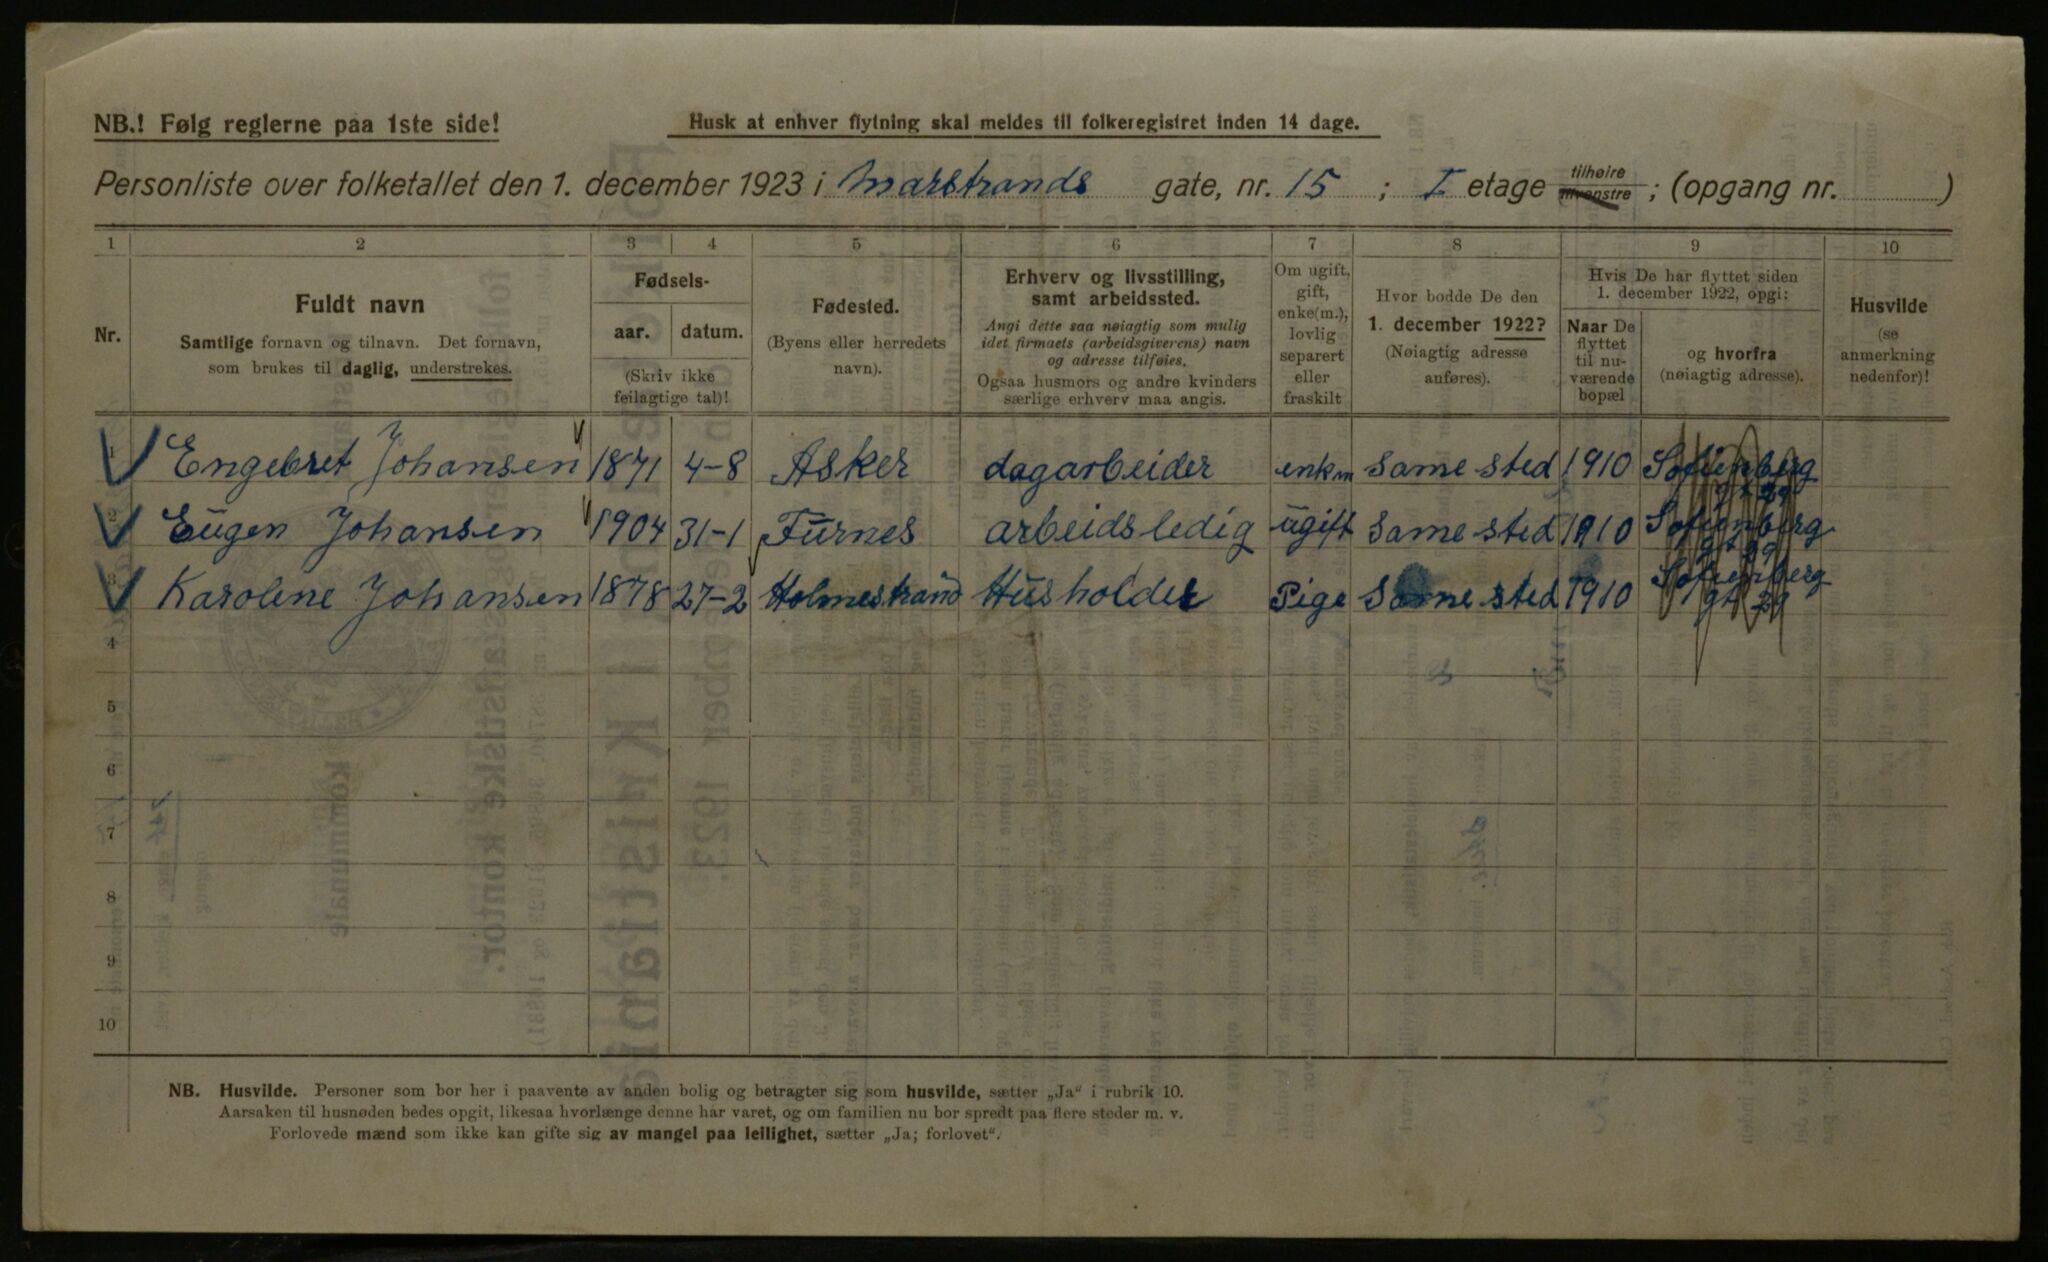 NB.! Følg reglerne paa 1ste side!
Husk at enhver flytning skal meldes til folkeregistret inden 14 dage.
Personliste over folketallet den 1. december 1923 i Marstrands gate, nr. 15 ; I etage tilhøire tilvenstre ; (opgang nr. )
1 2 3 4 5 6 7 8 9 10
Nr.
Fuldt navn
Samtlige fornavn og tilnavn. Det fornavn,
som brukes til daglig, understrekes.
Fødsels-
aar. datum.
(Skriv ikke
feilagtige tal)!
Fødested.
(Byens eller herredets
navn).
Erhverv og livsstilling,
samt arbeidssted.
Angi dette saa nøiagtig som mulig
idet firmaets (arbeidsgiverens) navn
og adresse tilføies.
Ogsaa husmors og andre kvinders
særlige erhverv maa angis.
Om ugift,
gift,
enke(m.),
lovlig
separert
eller
fraskilt
Hvor bodde De den
1. december 1922?
(Nøiagtig adresse
anføres).
Hvis De har flyttet siden
1. december 1922, opgi:
Naar De
flyttet
til nu-
værende
bopæl
og hvorfra
(nøiagtig adresse).
Husvilde
(se
anmerkning
nedenfor)!
1 Engebret Johansen 1871 4-8 Asker dagarbeider enkm Same sted 1910 Sofienberg gt 29
2 Eugen Johansen 1904 31-1 Furnes arbeidsledig ugift Same sted 1910 Sofienberg gt 29
3 Karoline Johansen 1878 27-2 Holmestrand Husholder Pige Same sted 1910 Sofienberg gt 29
4
5
6
7
8
9
10
NB. Husvilde. Personer som bor her i paavente av anden bolig og betragter sig som husvilde, sætter „Ja“ i rubrik 10.
Aarsaken til husnøden bedes opgit, likesaa hvorlænge denne har varet, og om familien nu bor spredt paa flere steder m. v.
Forlovede mænd som ikke kan gifte sig av mangel paa leilighet, sætter „Ja; forlovet“.